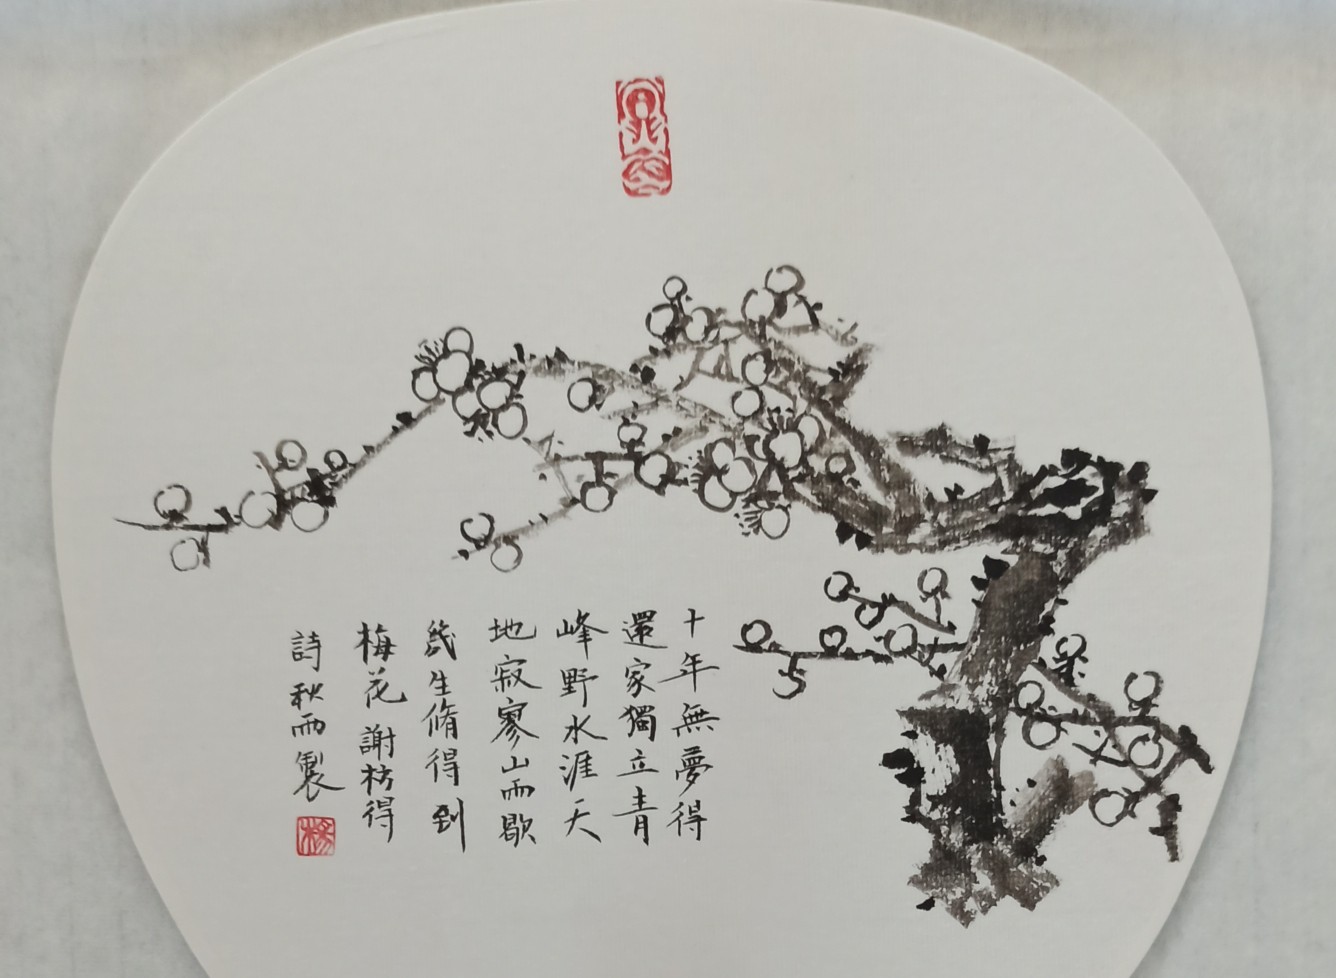 十年無夢得
還家獨立青
峰野水涯天
地寂寥山雨歇
幾生脩得到
梅花 謝枋得
詩秋雨製
楊